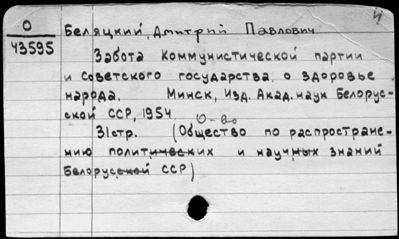 4
О
43595
Беляцкий, Дмитрий Павлович
Забота Коммунистической партии
и Советского государства о здоровье
народа. Минск, Изд. Акад. наук Белорус-
ской ССР, 1954.
О-во
31стр. (Общество по распростране-
нию политических и научных знаний
Белорусской ССР)